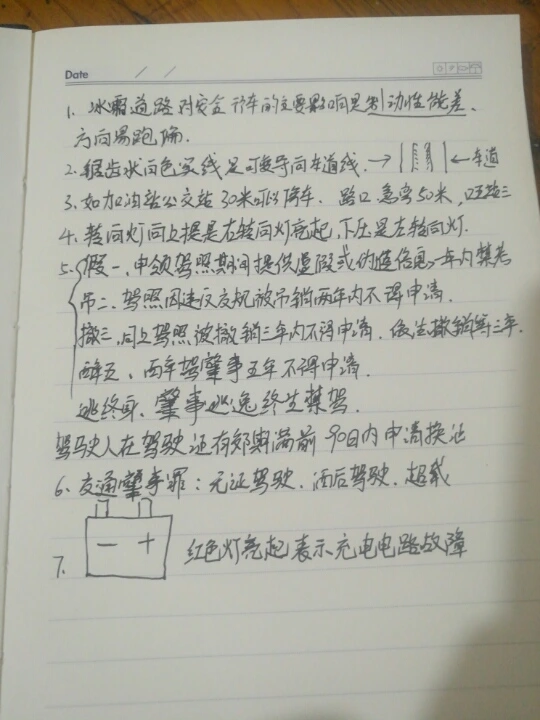 Date / /
1. 冰霜道路对安全行车的主要影响是制动性能差、
方向易跑偏.
2. 锯齿状白色实线是可变导向车道线.→ ←车道
3. 如加油站公交站30米可以停车. 路口 50米,
4. 转向灯向上提是右转向灯亮起,下压是左转向灯.
5. 假一、申领驾照期间提供虚假或 信息,一年内禁考
吊二、驾照因违反交规被吊销两年内不得申请.
撤三、同上驾照被撤销三年内不得申请. 依法撤销等三年.
醉五、酒驾肇事五年不得申请.
逃终身、肇事逃逸终生禁驾.
驾驶人在驾驶证有效期满前90日内申请换证
6. 交通肇事罪:无证驾驶.酒后驾驶.超载
7. - + 红色灯亮起表示充电电路故障